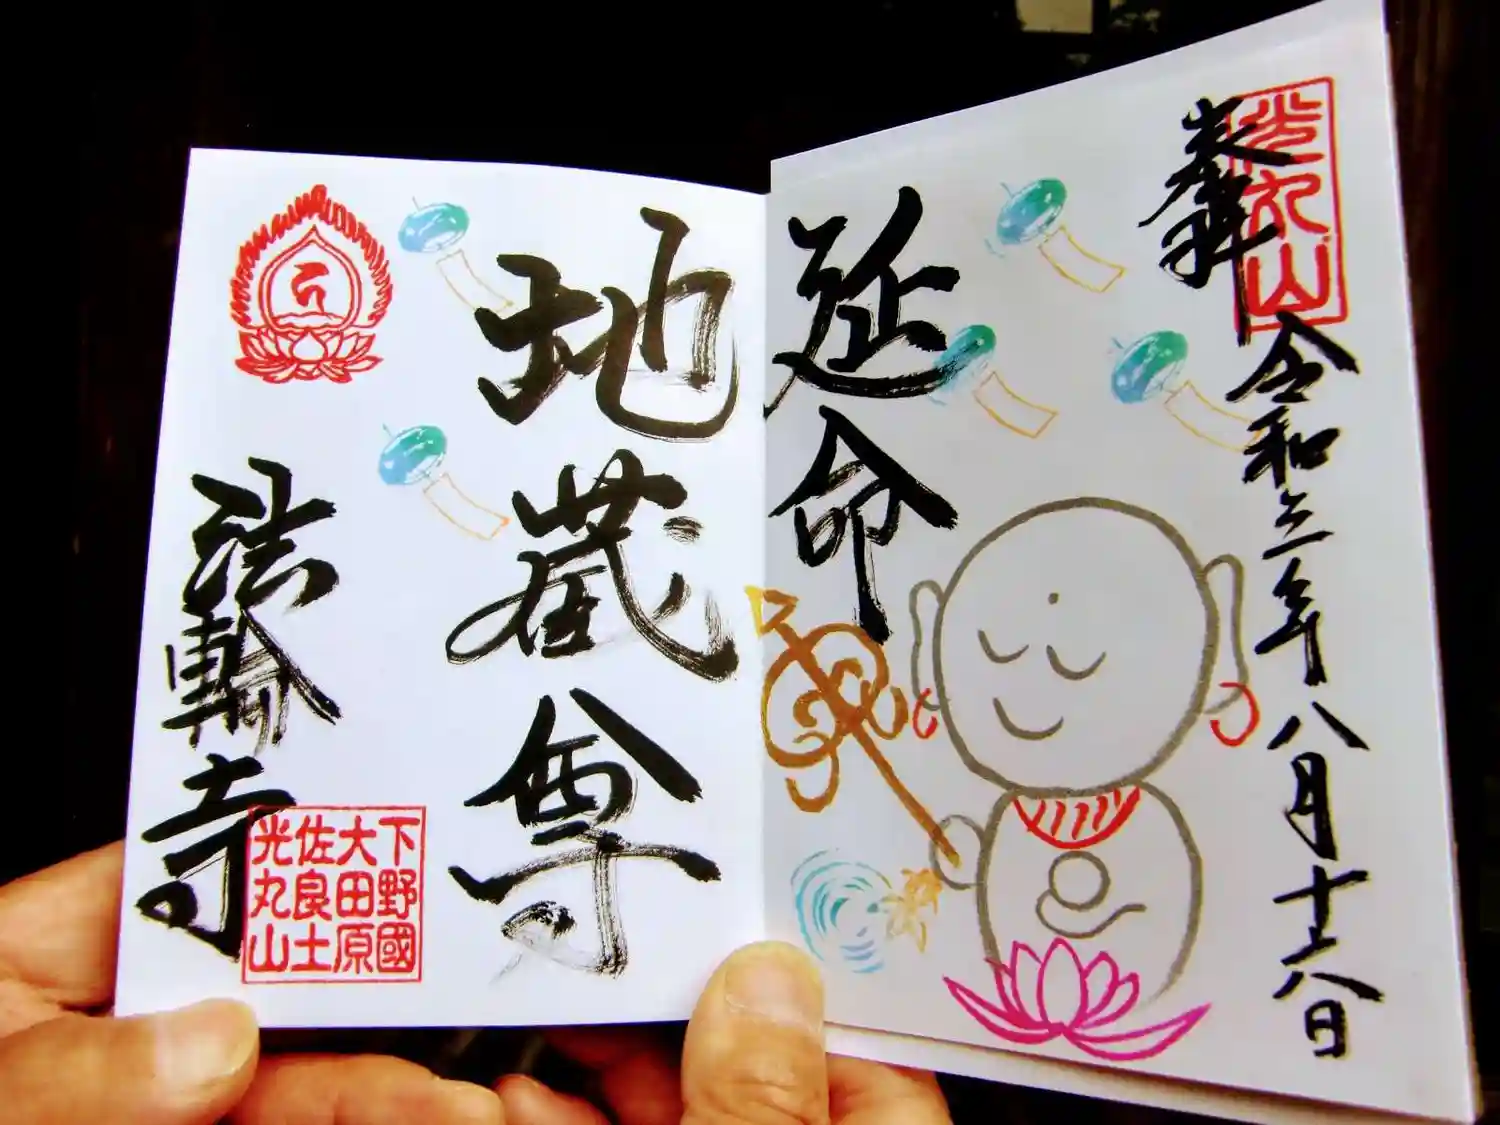 光丸山
奉拝
令和三年八月十六日
延命
地蔵尊
法輪寺
下野國
大田原
佐良土
光丸山